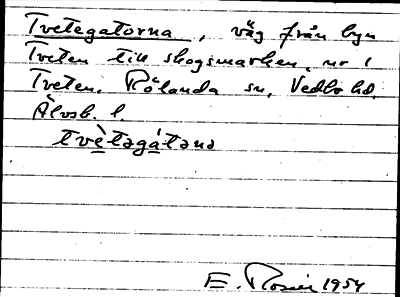 Tvetegatorna, väg från byn
Tveten till skogsmarken, nr 1
Tveten. Rölanda sn, Vedbo hd.
Älvsb. l.
tvètəgátəna
E. Rosén 1954